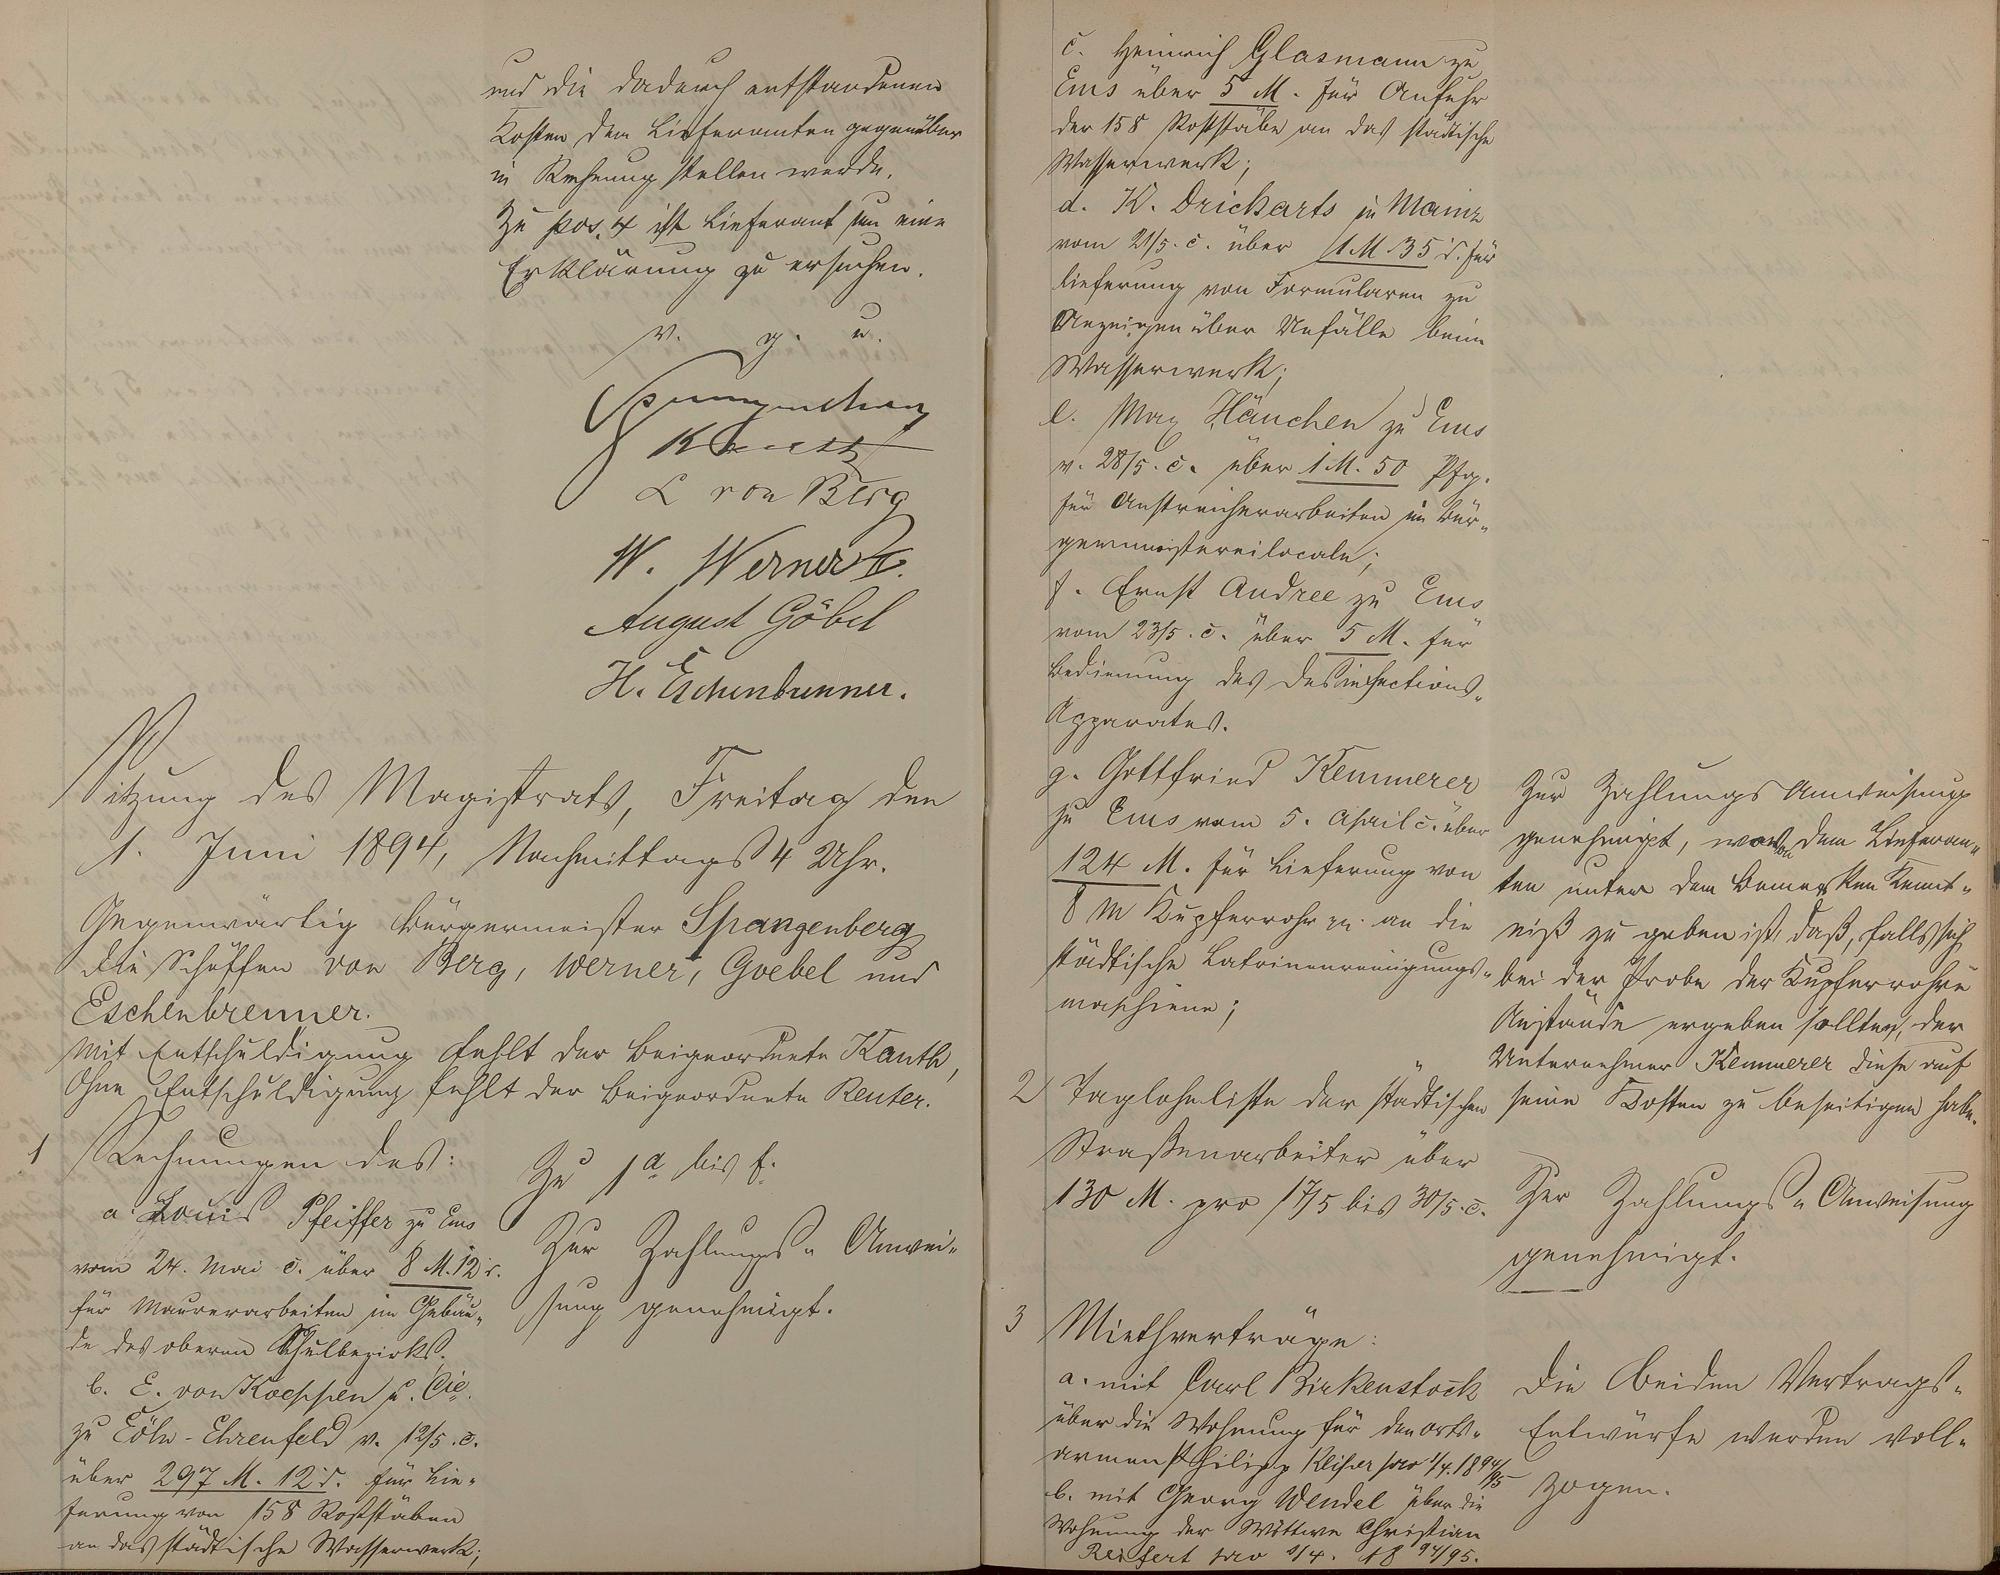 und die dadurch entstandenen
Kosten dem Lieferanten gegenüber
in Rechnung stellen werde.
Zu pos. 4 ist Lieferant um eine
Erklärung zu ersuchen.
v. g. u.
Spangenberg
L von Berg
W. Werner II.
August Göbel
H. Eschenbrenner.
Sitzung des Magistrats, Freitag den
1. Juni 1894, Nachmittags 4 Uhr.
Gegenwärtig Bürgermeister Spangenberg
die Schöffen von Berg, Werner, Goebel und
Eschenbrenner.
Mit Entschuldigung fehlt der Beigeordnete Kauth,
Ohne Entschuldigung fehlt der Beigeordnete Reuter.
1 Rechnungen des:
a. Louis Pfeiffer zu Ems
vom 24. Mai c. über 8 M. 12 d.
für Maurerarbeiten im Gebäu-
de des oberen Schulbezirks.
b. E. von Koeppen u. Cie.
zu Cöln-Ehrenfeld v. 12/5. c.
über 297 M. 12 d. für Lie-
ferung von 158 Roststäben
an das städtische Wasserwerk;
Zu 1 a bis f.
Zur Zahlungs-Anwei-
sung genehmigt.
c. Heinrich Glasmann zu
Ems über 5 M. für Anfuhr
der 158 Roststäbe an das städtische
Wasserwerk;
d. K. Drickarts in Mainz
vom 21/5. c. über 1 M 35 d. für
Lieferung von Formularen zu
Anzeigen über Unfälle beim
Wasserwerk;
e. Max Hänchen zu Ems
v. 28/5. c. über 1 M. 50 Pfg.
für Anstreicherarbeiten im Bür-
germeistereilocale;
f. Ernst Andree zu Ems
vom 23/5. c. über 5 M. für
Bedienung des Desinfections-
Apparates.
g. Gottfried Kemmerer
zu Ems vom 5. April c. über
124 M. für Lieferung von
8 m Kupferrohr an die
städtische Latrinenreinigungs-
maschiene;
Zur Zahlungs Anweisung
genehmigt, wovon dem Lieferan-
ten unter dem Bemerken Kennt-
niß zu geben ist, daß, falls sich
bei der Probe der Kupferrohre
Anstände ergeben sollten, der
Unternehmer Kemmerer diese auf
seine Kosten zu beseitigen habe.
2 Taglohnliste der städtischen
Straßenarbeiter über
130 M. pro 17/5 bis 30/5. c.
Zur Zahlungs-Anweisung
genehmigt.
3 Miethverträge:
a. mit Carl Birkenstock
über die Wohnung für den orts-
armen Philipp pro 1/4. 1894/95
b. mit Georg Wendel über die
Wohnung der Wittwe Christian
Reifert pro 1/4. 1894/95.
Die beiden Vertrags-
Entwürfe werden voll-
zogen.